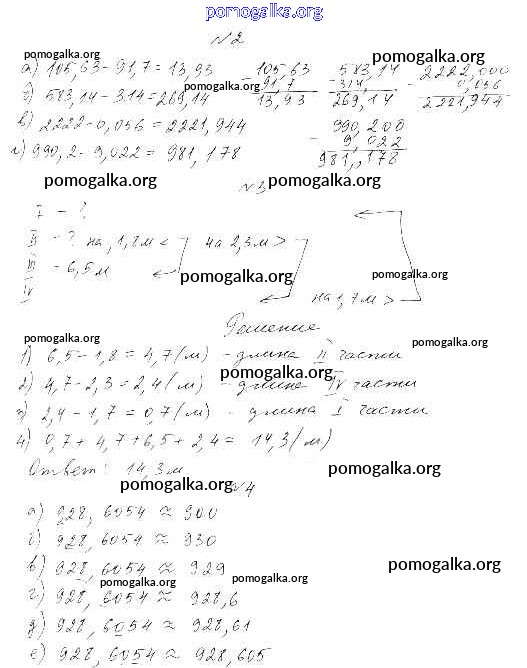 pomogalka.org
№2
pomogalka.org
а) 105,63 - 91,7 = 13,93
б) 583,14 - 314 = 269,14
в) 2222 - 0,056 = 2221,944
г) 990,2 - 9,022 = 981,178
- 105,63
91,7
13,93
- 583,14
314,
269,14
pomogalka.org
- 2222,000
0,056
2221,944
- 990,200
9,022
981,178
pomogalka.org
№3
pomogalka.org
I - ?
II - ? на 1,8 м < на 2,3 м >
III = 6,5 м
IV
pomogalka.org
pomogalka.org
на 1,7 м >
Решение
pomogalka.org
pomogalka.org
1) 6,5 - 1,8 = 4,7 (м) - длина II части
pomogalka.org
2) 4,7 - 2,3 = 2,4 (м) - длина IV части
3) 2,4 - 1,7 = 0,7 (м) - длина I части
4) 0,7 + 4,7 + 6,5 + 2,4 = 14,3 (м)
Ответ: 14,3 м
pomogalka.org
pomogalka.org
№4
а) 928,6054 ≈ 900
б) 928,6054 ≈ 930
в) 928,6054 ≈ 929
pomogalka.org
pomogalka.org
pomogalka.org
г) 928,6054 ≈ 928,6
д) 928,6054 ≈ 928,61
е) 928,6054 ≈ 928,605